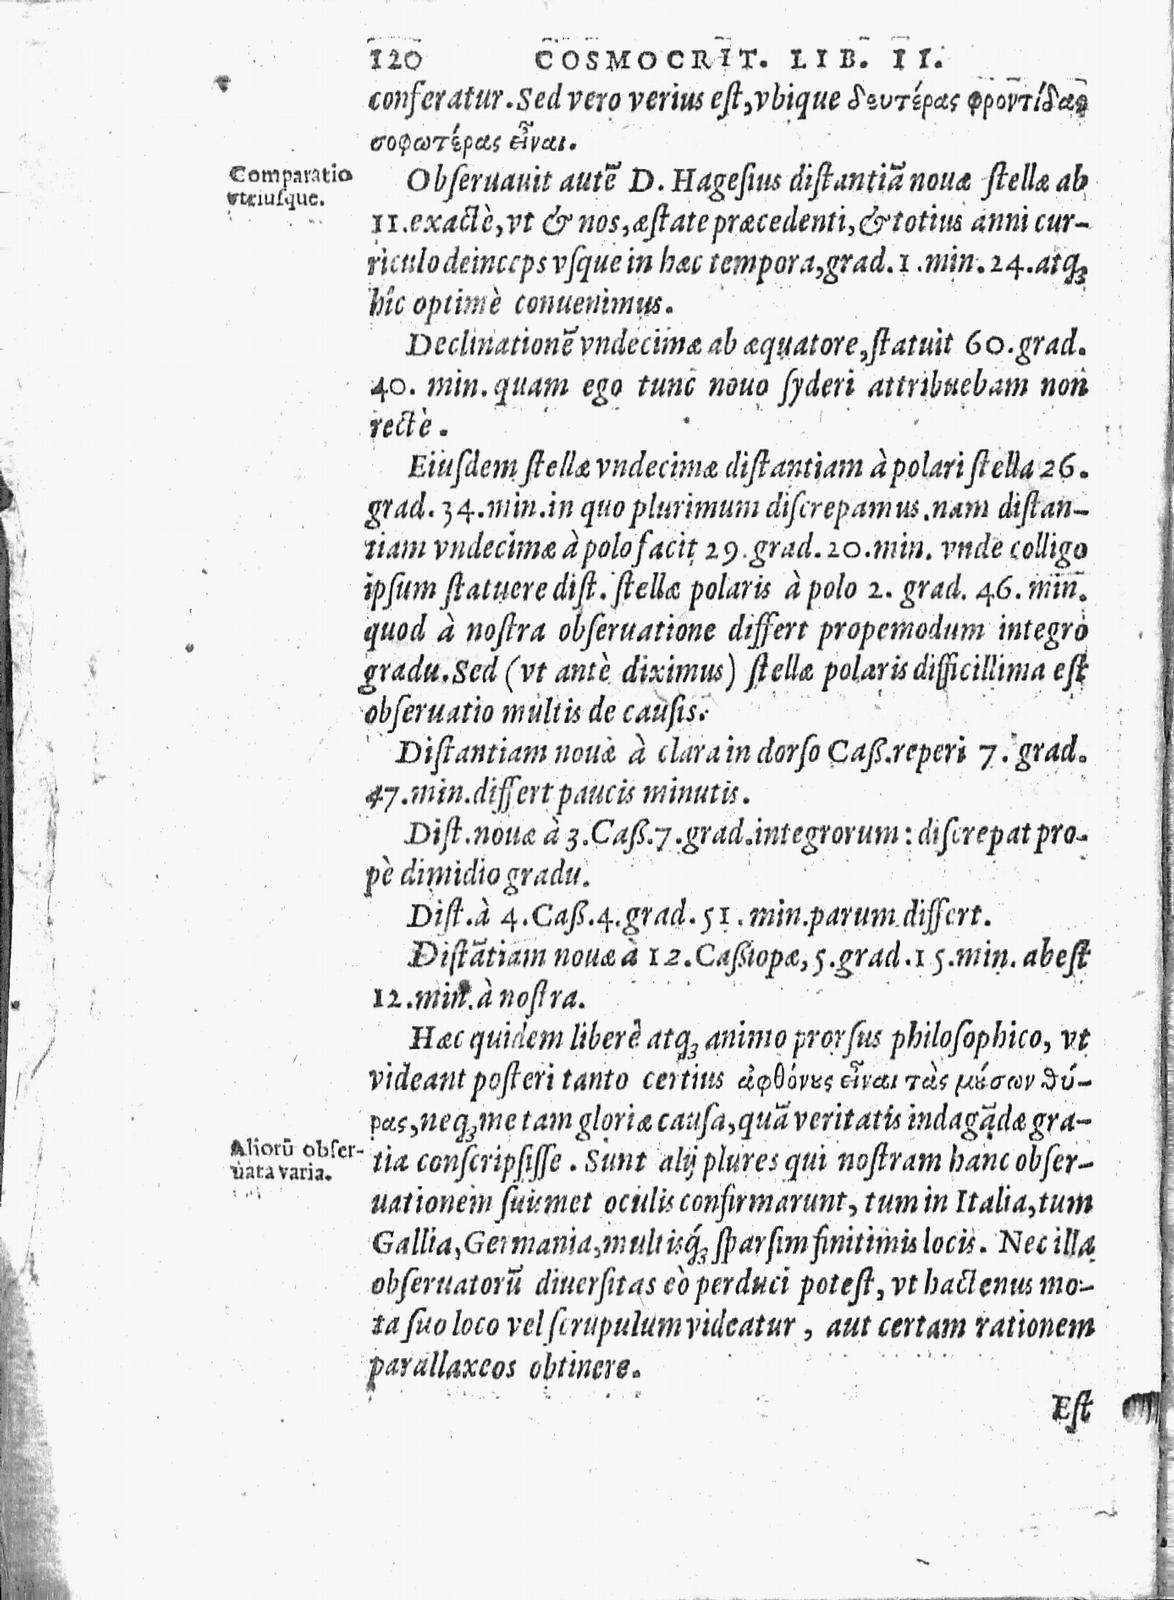 120 COSMOCRIT. LIB. II.
conferatur. Sed vero verius eſt, vbique δευτέρας φροντίδας
σοφωτέρας εἶναι.
Comparatio
vtriuſque.
Obſeruauit autē D. Hageſius diſtantiā nouæ ſtellæ ab
11. exactè, vt & nos, æſtate præcedenti, & totius anni cur-
riculo deinceps vſque in hæc tempora, grad. 1. min. 24. atq;
hîc optimè conuenimus.
Declinationē vndecimæ ab æquatore, ſtatuit 60. grad.
40. min. quam ego tunc nouo ſyderi attribuebam non
rectè.
Eiuſdem ſtellæ vndecimæ diſtantiam à polari ſtella 26.
grad. 34. min. in quo plurimum diſcrepamus. nam diſtan-
tiam vndecimæ à polo facit 29. grad. 20. min. vnde colligo
ipſum ſtatuere diſt. ſtellæ polaris à polo 2. grad. 46. min.
quod à noſtra obſeruatione differt propemodum integro
gradu. Sed (vt antè diximus) ſtellæ polaris difficillima eſt
obſeruatio multis de cauſis.
Diſtantiam nouæ à clara in dorſo Caß. reperi 7. grad.
47. min. differt paucis minutis.
Diſt. nouæ à 3. Caß. 7. grad. integrorum: diſcrepat pro-
pè dimidio gradu.
Diſt. à 4. Caß. 4. grad. 51. min. parum differt.
Diſtātiam nouæ à 12. Caßiopæ, 5. grad. 15. min. abeſt
12. min. à noſtra.
Hæc quidem liberè atq; animo prorſus philoſophico, vt
videant poſteri tanto certius ἀφθόνους εἶναι τὰς μούσων θύ-
ρας, neq; me tam gloriæ cauſa, quā veritatis indagādæ gra-
Aliorū obſer-
uata varia.
tia conſcripſiſſe. Sunt alij plures qui noſtram hanc obſer-
uationem ſuiſmet oculis confirmarunt, tum in Italia, tum
Gallia, Germania, multisq́; ſparſim finitimis locis. Nec illa
obſeruatorū diuerſitas eò perduci poteſt, vt hactenus mo-
ta ſuo loco vel ſcrupulum videatur, aut certam rationem
parallaxeos obtinere.
Eſt